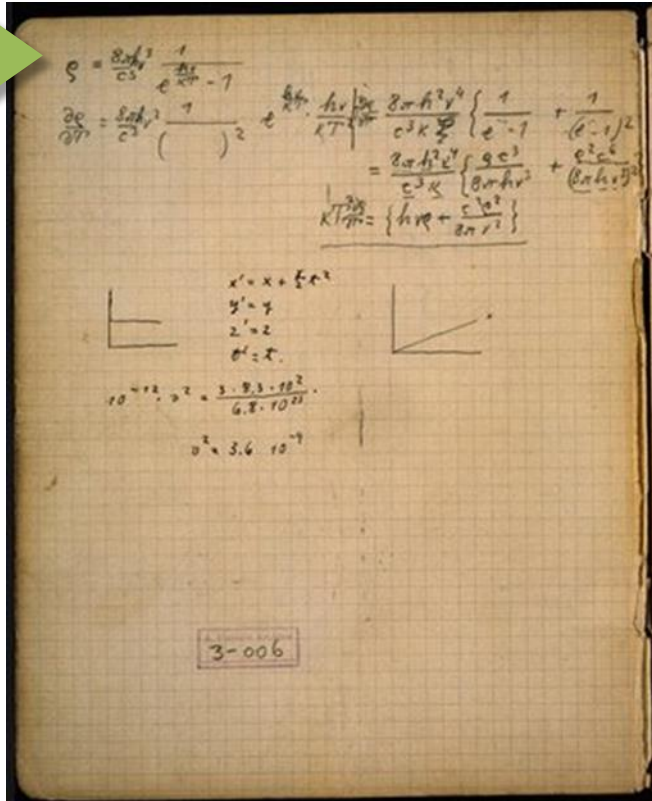 ρ = 8πhν³/c³ 1/(e^(hν/κT) - 1)
∂ρ/∂T = 8πhν³/c³ 1/( )² e^(hν/κT) · hν/κT²
8πh²ν⁴/c³κ { 1/(e - 1) + 1/(e - 1)²
= 8πh²ν⁴/c³κ { ρc³/8πhν³ + ρ²c⁶/(8πhν³)²
κT² ∂ρ/∂T = { hνρ + c³ρ²/8πν² }
x' = x + t²
y' = y
z' = z
t' = t.
10⁻¹² · v² = 3 · 8,3 · 10² / 6.8 · 10²³ .
v² = 3.6 10⁻⁹
3-006